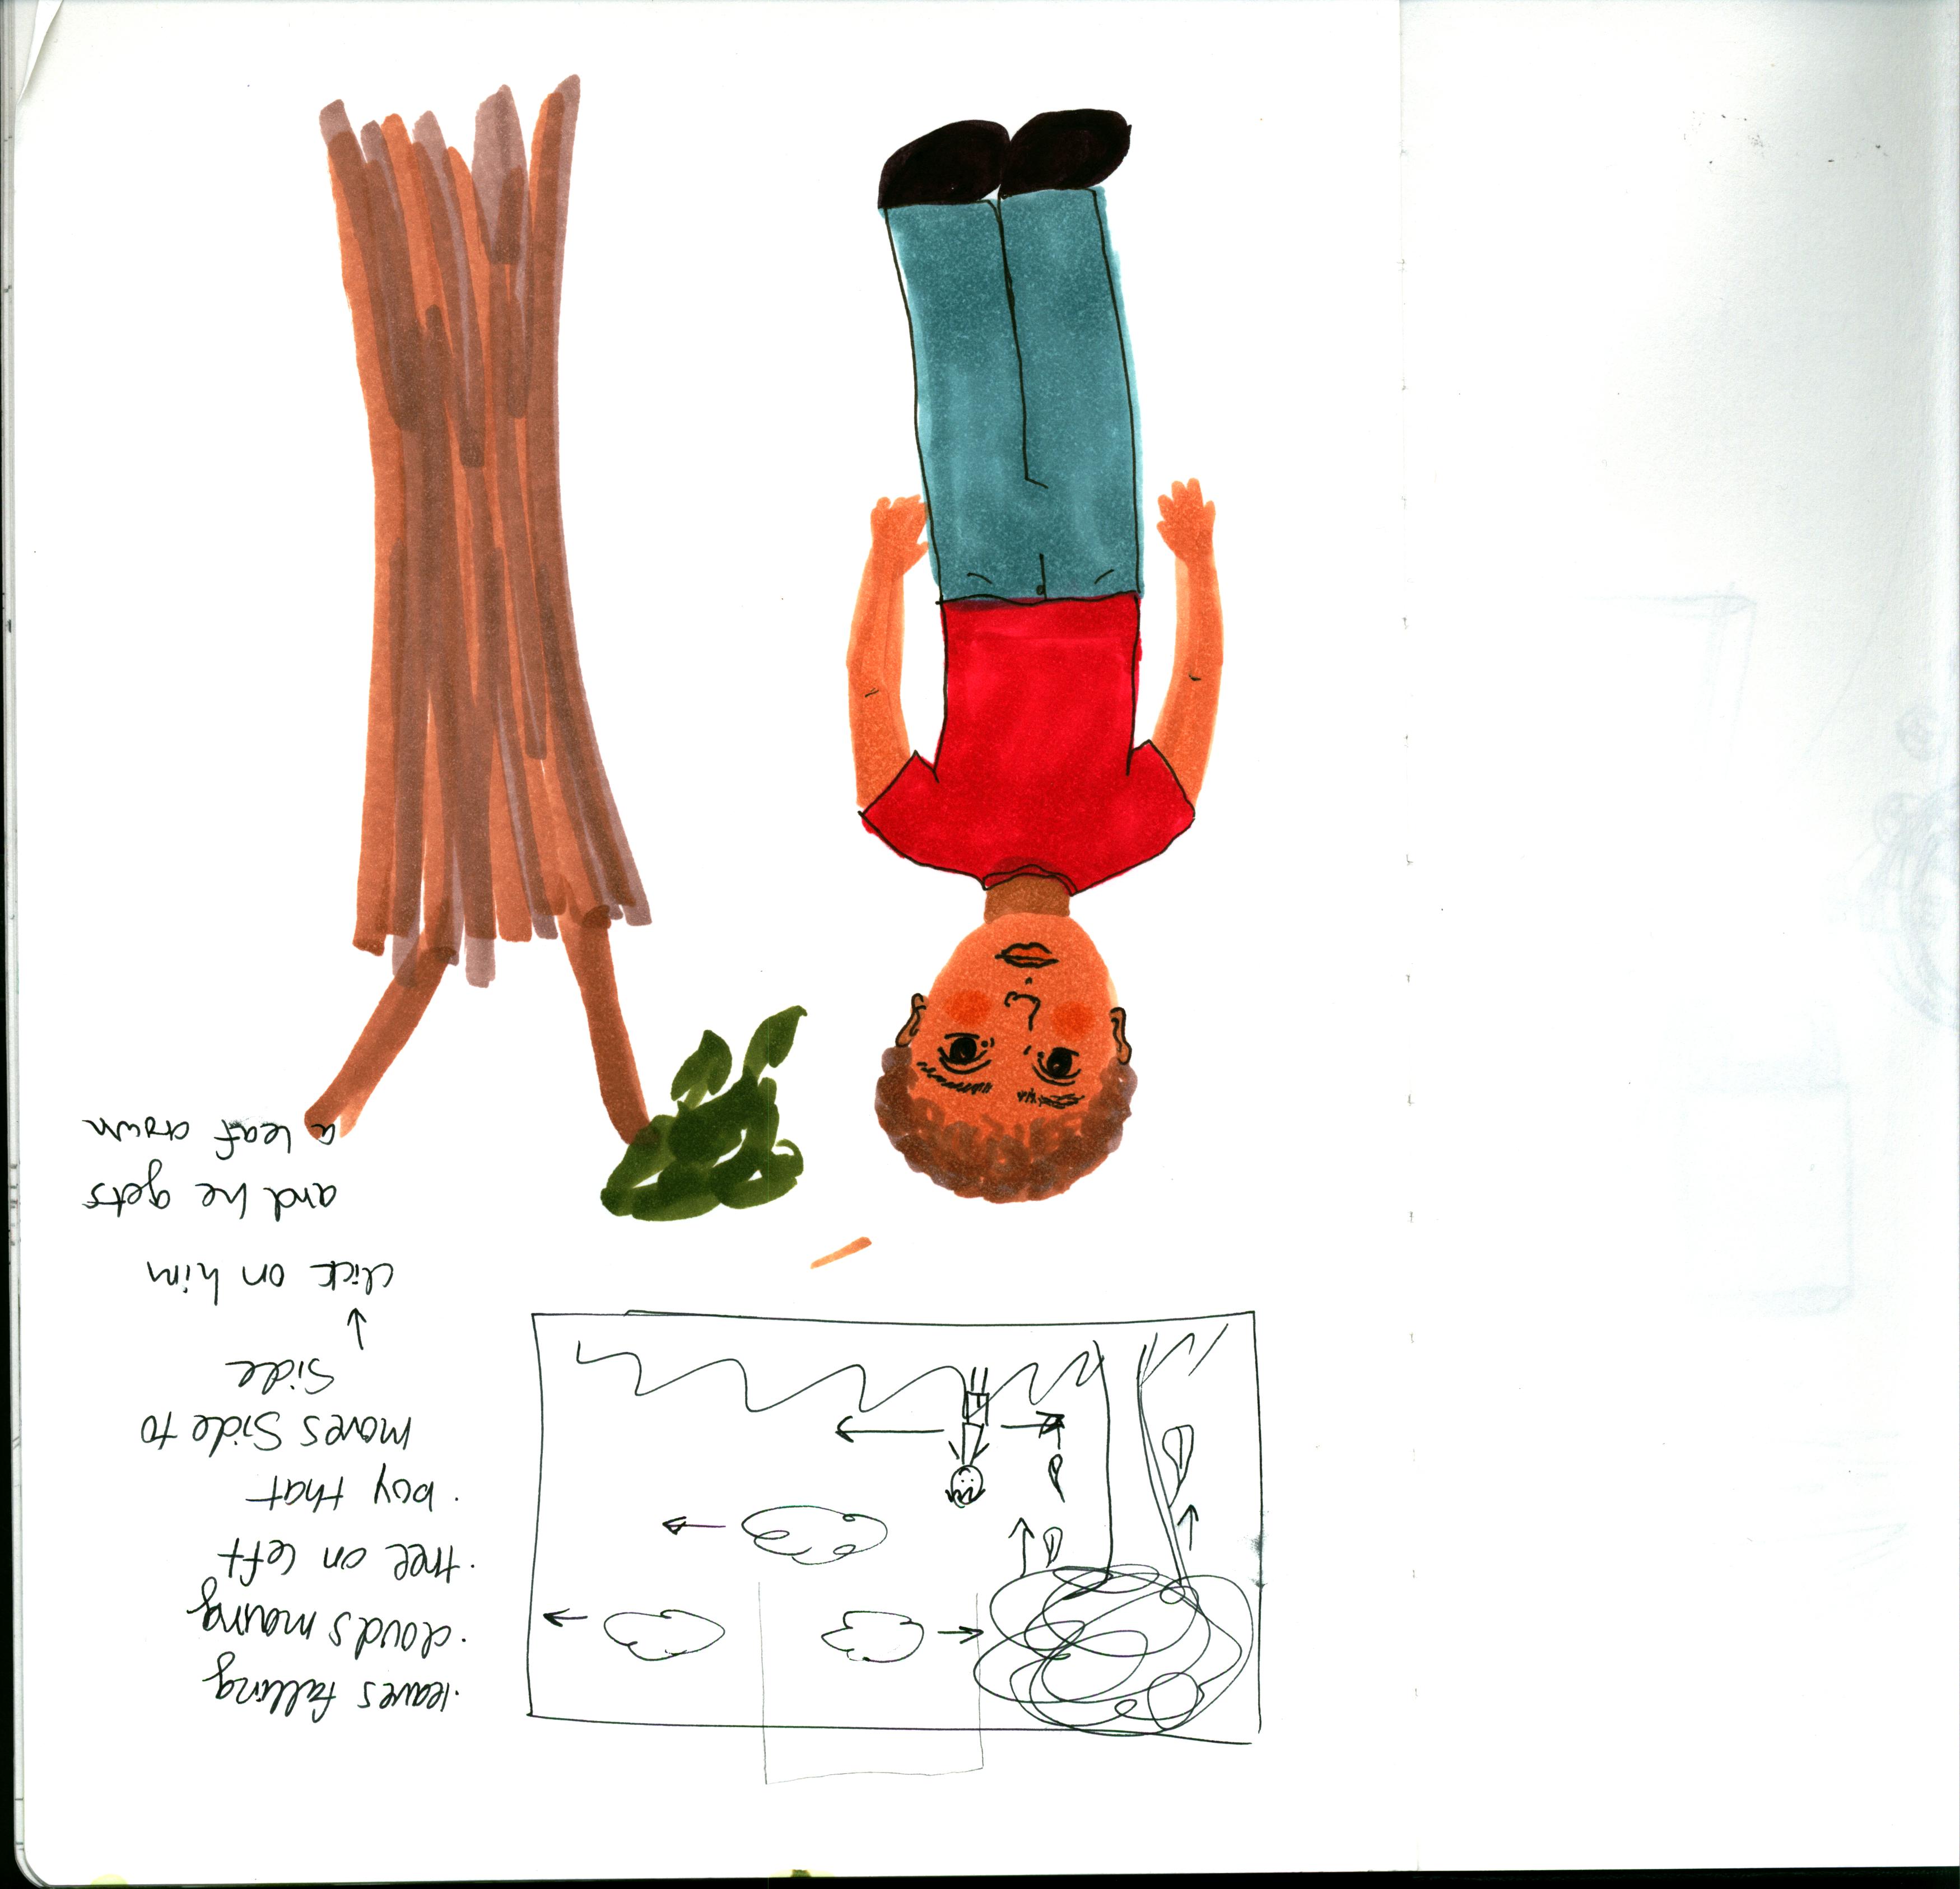 · leaves falling
· clouds moving
· tree on left
· boy that
moves side to
side
↓
click on him
and he gets
a leaf down